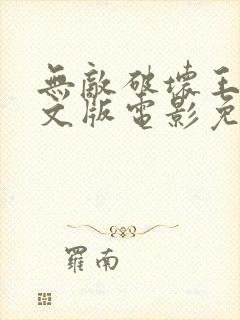 無敵破壞王
文版電影免
羅南